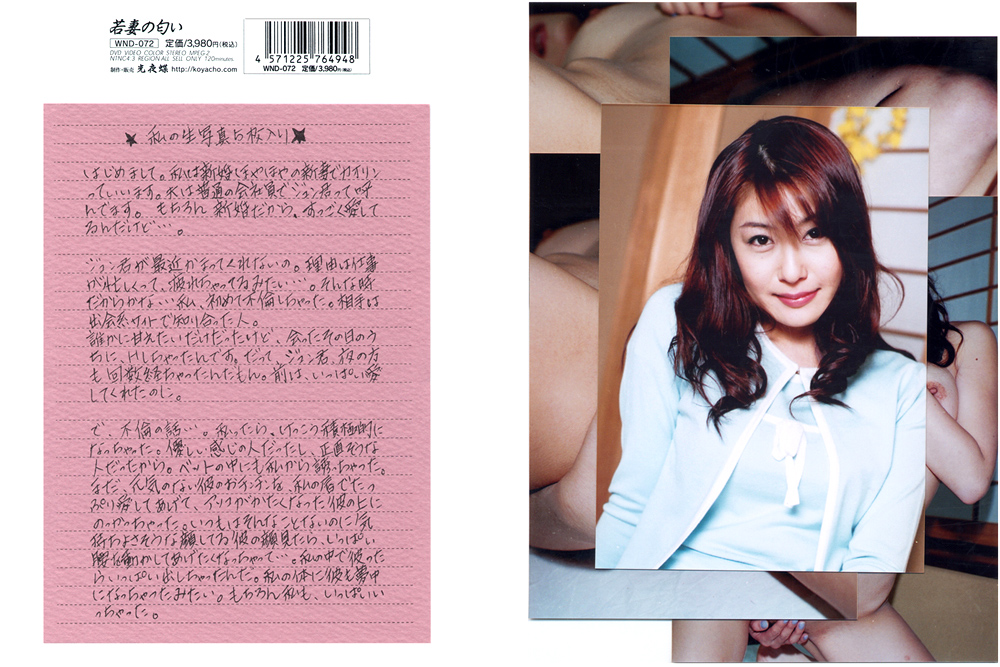 若妻の匂い
WND-072 定価/3,980円(税込)
DVD VIDEO COLOR STEREO MPEG-2
NTSC4:3 REGION ALL SELL ONLY 120minutes
制作・販売 光夜蝶 http://koyacho.com
4 571225 764948
WND-072 定価/3,980円(税込)
★ 私の生写真5枚入り ★
はじめまして。私は新婚ほやほやの新妻でカイリン
っていいます。夫は普通の会社員でジュン君って呼
んでます。もちろん新婚だから、すっごく愛して
るんだけど…。
ジュン君が最近かまってくれないの。理由は仕事
が忙しくって、疲れちゃってるみたい…。そんな時
だからかな…私、初めて不倫しちゃった。相手は
出会系サイトで知り合った人。
誰かに甘えたいだけだったけど、会ったその日のう
ちに、Hしちゃったんです。だって、ジュン君、夜の方
も回数減っちゃったんだもん。前は、いっぱい愛
してくれたのに。
で、不倫の話…。私ったら、けっこう積極的に
なっちゃった。優しい感じの人だったし、正直そうな
人だったから。ベットの中にも私から誘っちゃった。
まだ、元気のない彼のおチンチンを、私の唇でたっ
ぷり愛してあげて、アソコがかたくなった彼の上に
のっかっちゃった。いつもはそんなことないのに気
持ちよさそうな顔してる彼の顔見たら、いっぱい
腰を動かしてあげたくなっちゃって…。私の中で彼った
らいっぱい出しちゃったんだ。私の体に彼も夢中
になっちゃったみたい。もちろん私も、いっぱいい
っちゃった。